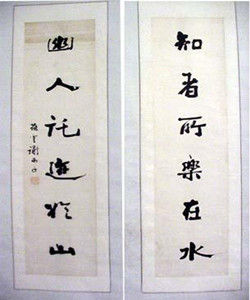 知者所樂在水
幽人託於山